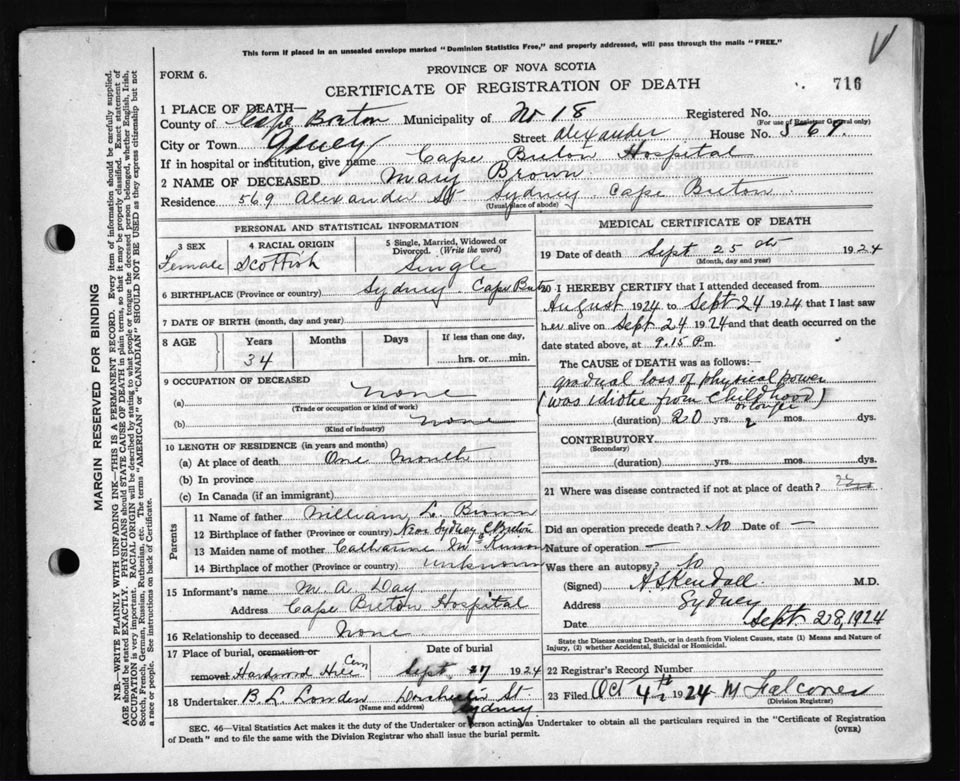 This form if placed in an unsealed envelope marked "Dominion Statistics Free," and properly addressed, will pass through the mails "FREE."
FORM 6.
PROVINCE OF NOVA SCOTIA
CERTIFICATE OF REGISTRATION OF DEATH
716
1 PLACE OF DEATH—
County of Cape Breton Municipality of No 18 Registered No.
(For use of Registrar General only)
City or Town Sydney Street Alexander House No. 569.
If in hospital or institution, give name Cape Breton Hospital
2 NAME OF DECEASED Mary Brown
Residence 569 Alexander St Sydney Cape Breton
(Usual place of abode)
PERSONAL AND STATISTICAL INFORMATION
3 SEX Female
4 RACIAL ORIGIN Scottish
5 Single, Married, Widowed or Divorced. (Write the word) Single
6 BIRTHPLACE (Province or country) Sydney Cape Bret
7 DATE OF BIRTH (month, day and year)
8 AGE Years Months Days If less than one day,
34 hrs. or min.
9 OCCUPATION OF DECEASED
(a) none
(Trade or occupation or kind of work)
(b) none
(Kind of industry)
10 LENGTH OF RESIDENCE (in years and months)
(a) At place of death One Month
(b) In province
(c) In Canada (if an immigrant)
Parents
11 Name of father William L. Brown
12 Birthplace of father (Province or country) Near Sydney C Breton
13 Maiden name of mother Catharine Mc Kinnon
14 Birthplace of mother (Province or country) unknown
15 Informant's name M. A. Day
Address Cape Breton Hospital
16 Relationship to deceased None
17 Place of burial, cremation or removal Hardwood Hill Cem
Date of burial Sept 27 1924
18 Undertaker B. L. Londen Dorchester St Sydney
(Name and address)
MEDICAL CERTIFICATE OF DEATH
19 Date of death Sept 25 th 1924
(Month, day and year)
20 I HEREBY CERTIFY that I attended deceased from
August 1924 to Sept 24 1924 that I last saw
her alive on Sept 24 1924 and that death occurred on
date stated above, at 9.15 P.m.
The CAUSE of DEATH was as follows:—
gradual loss of physical power
(was idiotic from Childhood)
or longer
(duration) 20 yrs. mos. dys.
CONTRIBUTORY
(Secondary)
(duration) yrs. mos. dys.
21 Where was disease contracted if not at place of death?
Did an operation precede death? No Date of —
Nature of operation —
Was there an autopsy? No
(Signed) A S Kendall M.D.
Address Sydney
Date Sept. 28, 1924
State the Disease causing Death, or in death from Violent Causes, state (1) Means and Nature of Injury, (2) whether Accidental, Suicidal or Homicidal.
22 Registrar's Record Number
23 Filed Oct 4th 1924 M Falconer
(Division Registrar)
SEC. 46—Vital Statistics Act makes it the duty of the Undertaker or person acting as Undertaker to obtain all the particulars required in the "Certificate of Registration
of Death" and to file the same with the Division Registrar who shall issue the burial permit.
(OVER)
MARGIN RESERVED FOR BINDING
N.B.—WRITE PLAINLY WITH UNFADING INK—THIS IS A PERMANENT RECORD. Every item of information should be carefully supplied.
AGE should be stated EXACTLY. PHYSICIANS should STATE CAUSE OF DEATH in plain terms, so that it may be properly classified. Exact statement of
OCCUPATION is very important. RACIAL ORIGIN will be described by stating to what people or tongue the deceased person belonged, whether English, Irish,
Scotch, French, German, Russian, Ruthenian, etc. The terms "AMERICAN" or "CANADIAN" SHOULD NOT BE USED as they express citizenship but not
a race or people. See instructions on back of Certificate.